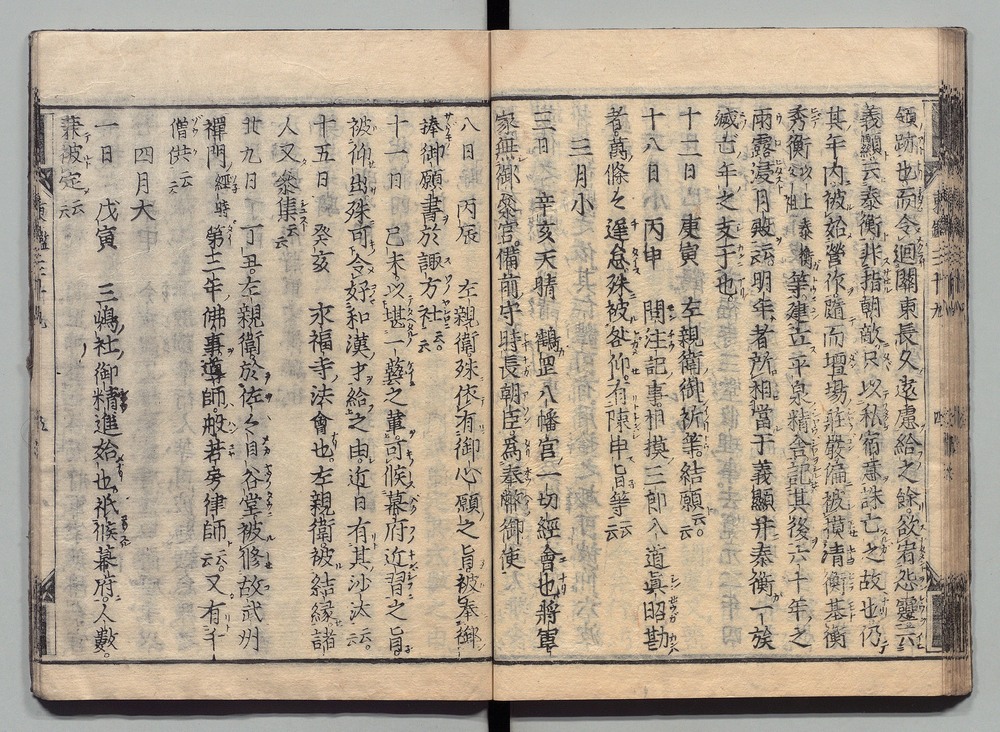 領跡也而令廻關東長久遠慮給之餘欲宥怨靈云云
義顯云泰衡非指朝敵只以私宿意誅亡之故也仍
其年内被始營作隨而壇場莊嚴偏被摸清衡基衡
秀衡以上泰衡父祖等建立平泉精舍訖其後六十年之
雨露侵月殿云云明年者所相當于義顯并泰衡一族
滅亡年之支干也
十二日　庚寅　左親衛御祈等結願云云
十八日小　丙申　問注記事相摸三郎入道眞昭勘
者萬條々遲怠殊被咎仰有陳申旨等云云
三月小
三日　辛亥天晴　鶴罡八幡宮一切經會也將軍
家無御參宮備前守時長朝臣爲奉幣御使
八日　丙辰　左親衛殊依有御心願之旨被奉御
捧御願書於諏方社云云
十一日　己未以堪一藝之輩可候幕府近習之旨
被仰出殊可令好和漢才給之由近日有其沙汰云云
十五日　癸亥　永福寺法會也左親衛被結縁諸
人又參集云云
廿九日　丁丑左親衛於佐々目谷堂被修故武州
禪門經時第三年佛事導師般若房律師云云又有千
僧供云云
四月大
一日　戊寅　三嶋社御精進始也祇候幕府人數
兼被定云云